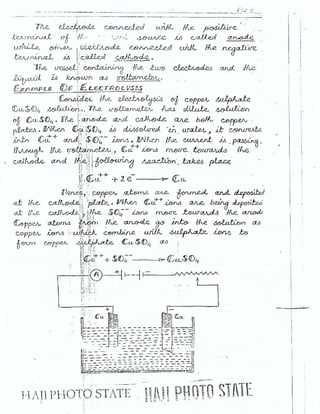 The electrode connected with the positive
terminal of the source is called anode
while other electrode connected with the negative
terminal is called cathode.
The vessel containing the two electrodes and the
liquid is known as voltameter.
EXAMPLE OF ELECTROLYSIS
Consider the electrolysis of copper sulphate
CuSO4 solution. The voltameter has dilute solution
of CuSO4. The anode and cathode are both copper
plates. When CuSO4 is dissolved in water, it converts
into Cu++ and SO4-- ions. When the current is passing
through the voltameter, Cu++ ions move towards the
cathode and the following reaction takes place
Cu++ + 2e- → Cu
Hence, copper atoms are formed and deposited
at the cathode plate. When Cu++ ions are being deposited
at the cathode, the SO4-- ions move towards the anode
Copper atoms from the anode go into the solution as
copper ions which combine with sulphate ions to
form copper sulphate CuSO4 as
Cu++ + SO4-- → CuSO4
A
+ -
Cu Cu
HAJI PHOTO STATE HAJI PHOTO STATE